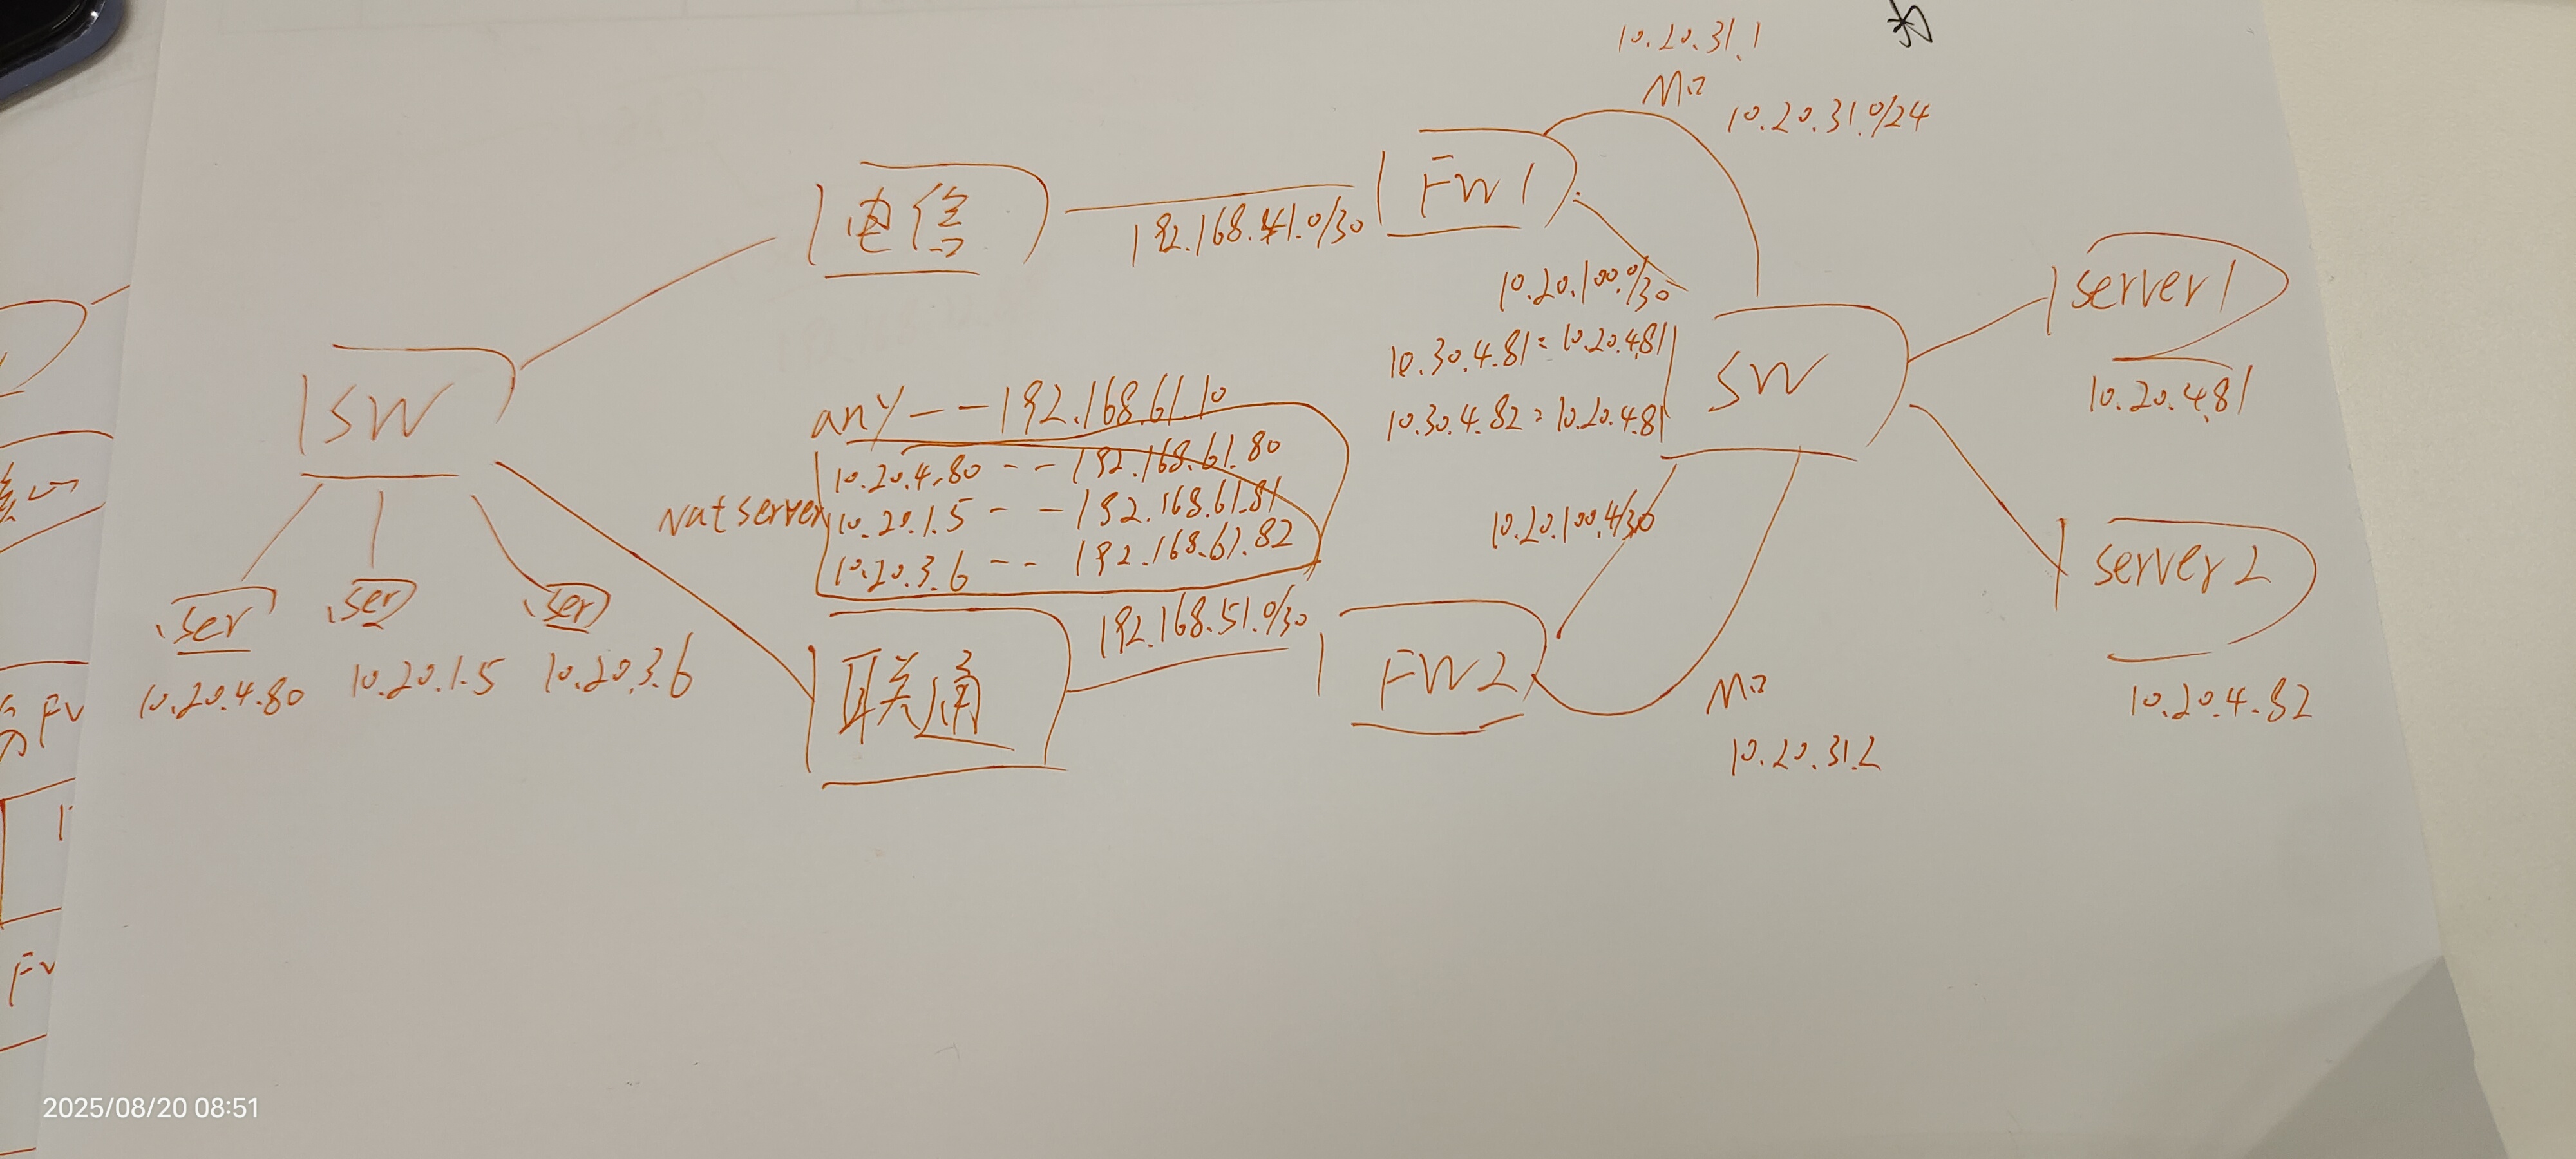 10.20.31.1
M0
10.20.31.0/24
电信
192.168.41.0/30
FW1
10.20.100.0/30
server1
10.20.4.81
SW
any -- 192.168.61.10
10.30.4.81=10.20.4.81
10.30.4.82=10.20.4.81
SW
nat server
10.20.4.80 -- 192.168.61.80
10.20.1.5 -- 192.168.61.81
10.20.3.6 -- 192.168.61.82
10.20.100.4/30
server2
10.20.4.82
ser
ser
ser
10.20.4.80
10.20.1.5
10.20.3.6
192.168.51.0/30
联通
FW2
M0
10.20.31.2
2025/08/20 08:51